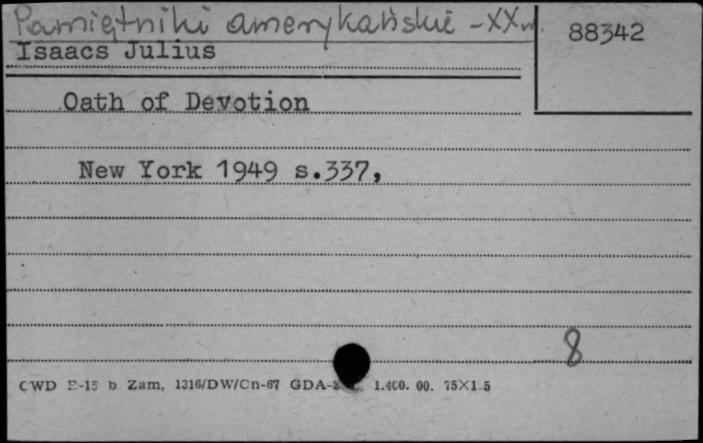 Pamiętniki amerykańskie - XX w.
88342
Isaacs Julius
Oath of Devotion
New York 1949 s.337,
8
CWD E-15 b Zam. 1316/DW/Cn-67 GDA- 1.400. 00. 75×1 5